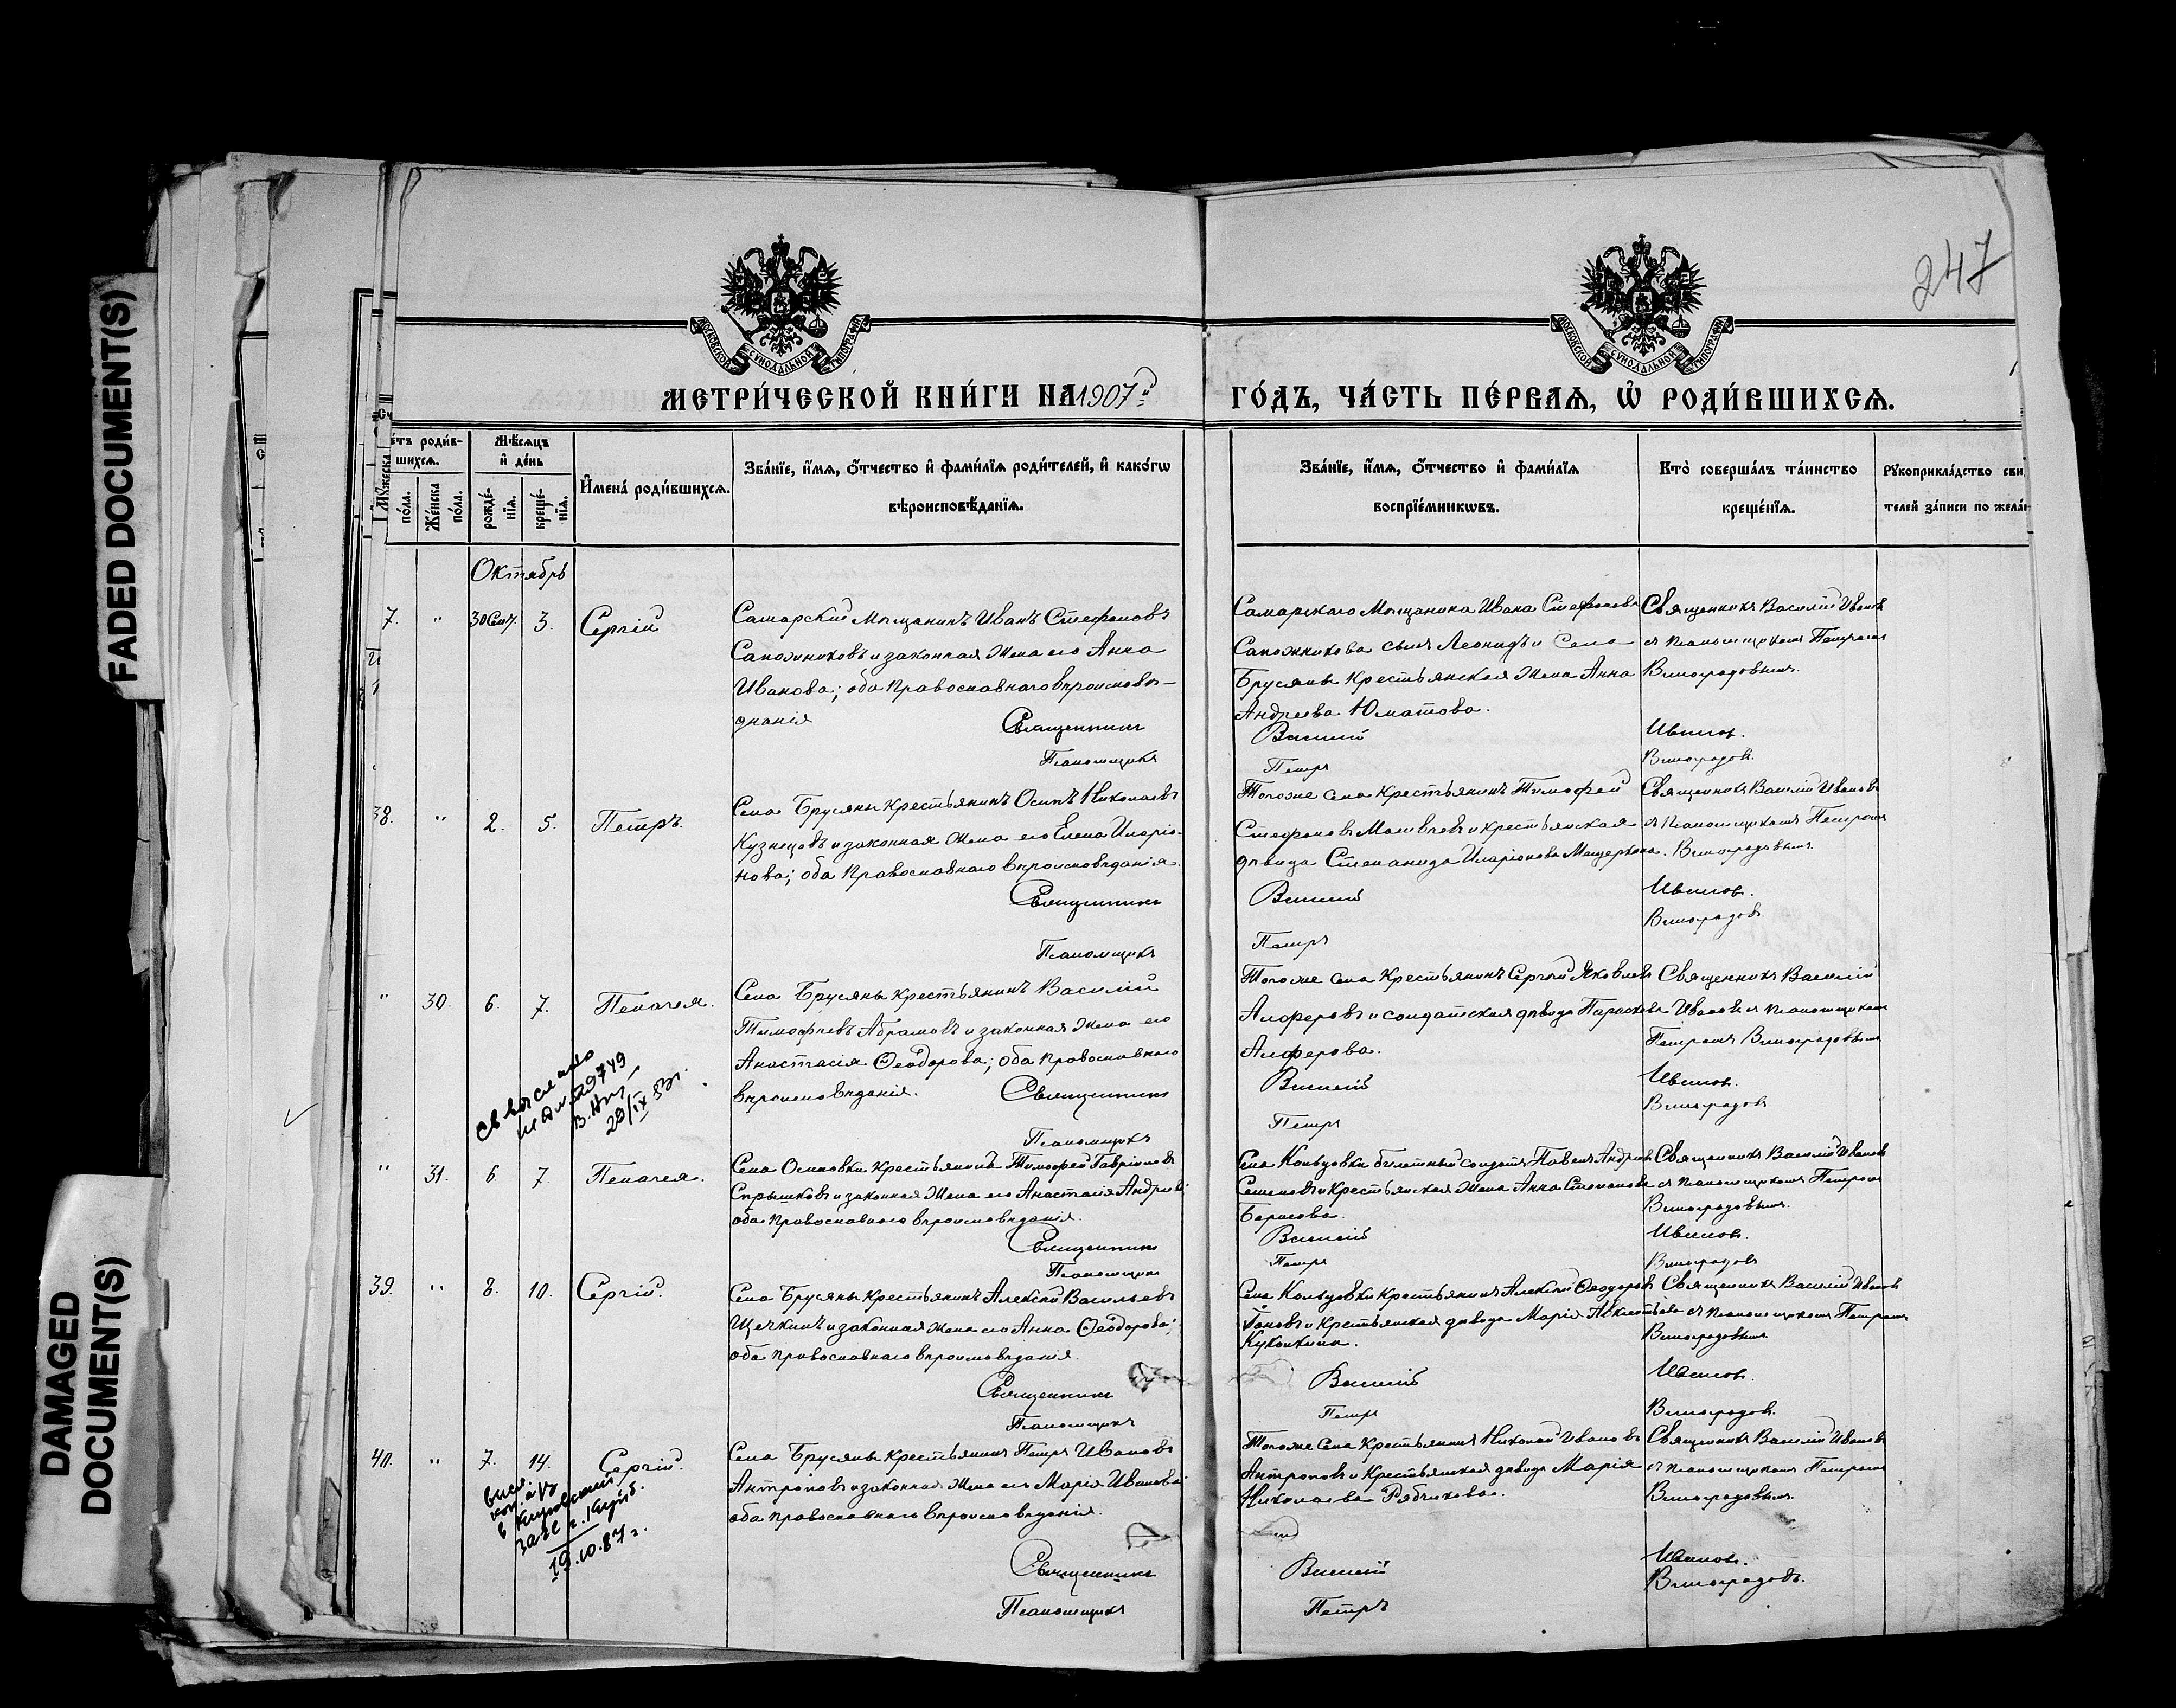 FADED DOCUMENT(S)
DAMAGED
DOCUMENT(S)
247
МОСКОВСКОЙ СѴНОДАЛЬНОЙ ТИПОГРАФІИ
МОСКОВСКОЙ СѴНОДАЛЬНОЙ ТИПОГРАФІИ
МЕТРИ́ЧЕСКОЙ КНИ́ГИ НА 1907й
ГО́ДЪ, ЧА́СТЬ ПЕ́РВАѦ, Ѡ҆ РОДИ́ВШИХСѦ.
роди́в-
шихсѧ.
Мѣ́сѧцъ
и҆ де́нь
Мꙋ́жеска
по́ла.
Же́нска
по́ла.
рожде́-
нїѧ.
креще́-
нїѧ.
И҆мена̀ роди́вшихсѧ.
Зва́нїе, и҆́мѧ, ѻ҆́тчество и҆ фами́лїѧ роди́телей, и҆ како́гѡ
вѣроисповѣ́данїѧ.
Зва́нїе, и҆́мѧ, ѻ҆́тчество и҆ фами́лїѧ
воспрїе́мникѡвъ.
Кто̀ соверша́лъ та́инство
креще́нїѧ.
Рꙋкоприкла́дство
телей за́писи по
Октябрь
7. " 30 Сент. 3. Сергій
Самарскій Мѣщанинъ Иванъ Стефановъ
Сапожниковъ и законная жена его Анна
Иванова; оба Православнаго вѣроисповѣ-
данія
Священникъ
Псаломщикъ
Самарскаго Мѣщанина Ивана Стефанова
Сапожникова сынъ Леонидъ и Села
Брусяны Крестьянская жена Анна
Андреева Юматова.
Василій
Петръ
Священникъ Василій Ивановъ
съ Псаломщикомъ Петромъ
Виноградовымъ.
Ивановъ.
Виноградовъ.
38. " 2. 5. Петръ.
Села Брусяны Крестьянинъ Осипъ Николаевъ
Кузнецовъ и законная жена его Елена Иларіо-
нова; оба Православнаго вѣроисповѣданія.
Священникъ
Псаломщикъ
Тогоже села Крестьянинъ Тимофей
Стефановъ Матвѣевъ и крестьянская
дѣвица Степанида Иларіонова
Василій
Петръ
Священникъ Василій Ивановъ
съ Псаломщикомъ Петромъ
Виноградовымъ.
Ивановъ.
Виноградовъ
" 30. 6. 7. Пелагея.
Села Брусяны Крестьянинъ Василій
Тимофеевъ Абрамовъ и законная жена его
Анастасія Ѳеодорова; оба Православнаго
вѣроисповѣданія.
Священникъ
Псаломщикъ
Тогоже села Крестьянинъ Сергѣй Яковлевъ
Алферовъ и солдатская дѣвица Параскева
Алферова.
Василій
Петръ
Священникъ Василій
Ивановъ съ Псаломщикомъ
Петромъ Виноградовымъ
Ивановъ.
Виноградовъ
св выслано
29/IX
" 31. 6. 7. Пелагея.
Села Осиновки Крестьянинъ Тимофей Гавріиловъ
и законная жена его Анастасія Андреева;
оба Православнаго вѣроисповѣданія.
Священникъ
Псаломщикъ
Села Кольцовки билетный солдатъ Павелъ Андреевъ
Семеновъ и Крестьянская жена Анна Степанова
Борисова.
Василій
Петръ
Священникъ Василій Ивановъ
съ Псаломщикомъ Петромъ
Виноградовымъ.
Ивановъ.
Виноградовъ
39. " 8. 10. Сергій.
Села Брусяны Крестьянинъ Алексѣй Васильевъ
Щечкинъ и законная жена его Анна Ѳеодорова;
оба Православнаго вѣроисповѣданія.
Священникъ
Псаломщикъ
Села Кольцовки Крестьянинъ Алексѣй Ѳеодоровъ
и Крестьянская дѣвица Марія
Василій
Петръ
Священникъ Василій Ивановъ
съ Псаломщикомъ Петромъ
Виноградовымъ
Ивановъ.
Виноградовъ.
40. " 7. 14. Сергій.
Села Брусяны Крестьянинъ Петръ Ивановъ
Антроповъ и законная жена его Марія Иванова;
оба православнаго вѣроисповѣданія.
Священникъ
Псаломщикъ
Тогоже Села Крестьянинъ Николай Ивановъ
Антроповъ и Крестьянская дѣвица Марія
Николаева Рябчикова.
Василій
Петръ
Священникъ Василій Ивановъ
съ Псаломщикомъ Петромъ
Виноградовымъ.
Ивановъ.
Виноградовъ.
19.10.87 г.